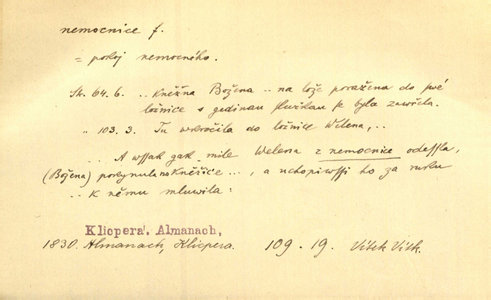 nemocnice f.
= pokoj nemocného.
Str. 64. 6. .. kněžna Božena .. na lože poražena do swé
ložnice s gedinau služkau se byla zawřela.
" 103. 3. Tu wkročila do ložnice Welena, ..
.. A wssak gak mile Welena z nemocnice odessla,
(Božena) pokynula na kněžice ..., a uchopiwssi ho za ruku
.. k němu mluwila:
Klicpera, Almanach,
1830. Almanach, Klicpera. 109. 19. Vítek Vítk.